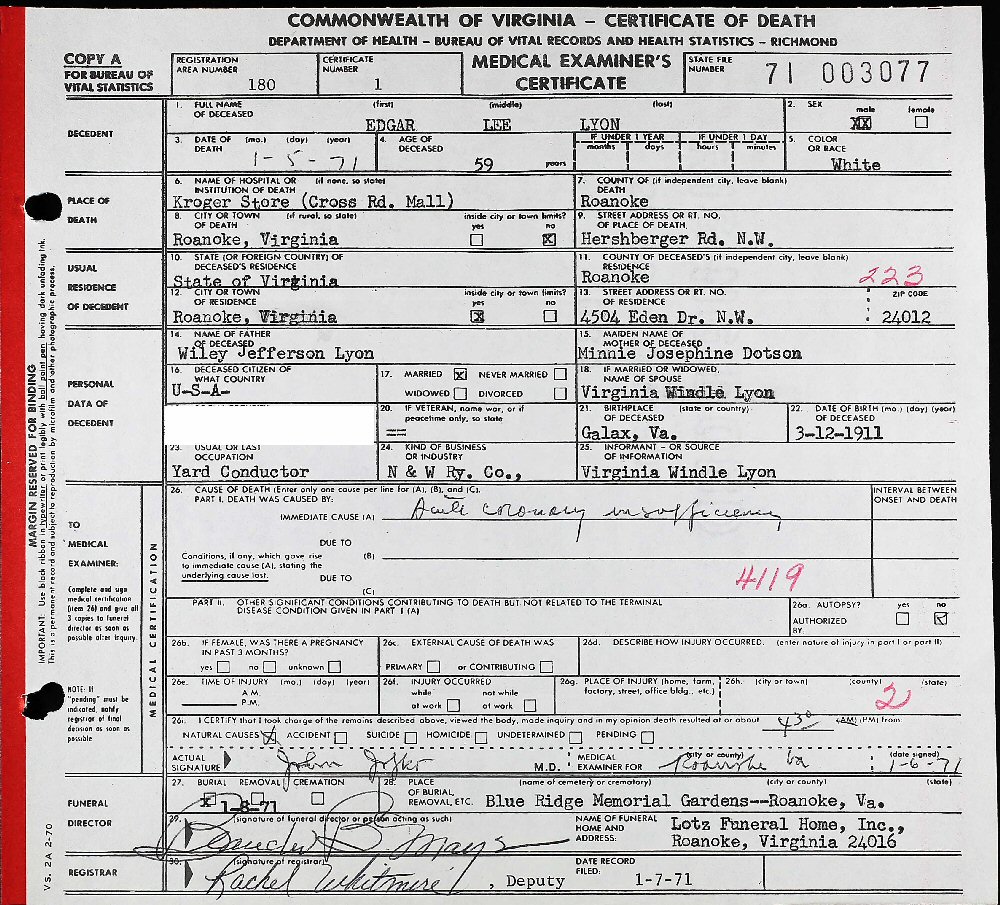 COMMONWEALTH OF VIRGINIA – CERTIFICATE OF DEATH
DEPARTMENT OF HEALTH – BUREAU OF VITAL RECORDS AND HEALTH STATISTICS – RICHMOND
COPY A
FOR BUREAU OF
VITAL STATISTICS
REGISTRATION
AREA NUMBER 180
CERTIFICATE
NUMBER 1
MEDICAL EXAMINER'S
CERTIFICATE
STATE FILE
NUMBER 71 003077
DECEDENT
1. FULL NAME (first) (middle) (last)
OF DECEASED
EDGAR LEE LYON
2. SEX male female
XX
3. DATE OF (mo.) (day) (year)
DEATH 1-5-71
4. AGE OF
DECEASED
59 years
IF UNDER 1 YEAR
months days
IF UNDER 1 DAY
hours minutes
5. COLOR
OR RACE
White
PLACE OF
DEATH
6. NAME OF HOSPITAL OR (if none, so state)
INSTITUTION OF DEATH
Kroger Store (Cross Rd. Mall)
7. COUNTY OF (if independent city, leave blank)
DEATH
Roanoke
8. CITY OR TOWN (if rural, so state)
OF DEATH
inside city or town limits?
yes no
X
Roanoke, Virginia
9. STREET ADDRESS OR RT. NO.
OF PLACE OF DEATH
Hershberger Rd. N.W.
USUAL
RESIDENCE
OF DECEDENT
10. STATE (OR FOREIGN COUNTRY) OF
DECEASED'S RESIDENCE
State of Virginia
11. COUNTY OF DECEASED'S (if independent city, leave blank)
RESIDENCE
Roanoke
223
12. CITY OR TOWN
OF RESIDENCE
inside city or town limits?
yes no
X
Roanoke, Virginia
13. STREET ADDRESS OR RT. NO.
OF RESIDENCE
4504 Eden Dr. N.W.
ZIP CODE
24012
PERSONAL
DATA OF
DECEDENT
14. NAME OF FATHER
OF DECEASED
Wiley Jefferson Lyon
15. MAIDEN NAME OF
MOTHER OF DECEASED
Minnie Josephine Dotson
16. DECEASED CITIZEN OF
WHAT COUNTRY
U-S-A-
17. MARRIED X NEVER MARRIED
WIDOWED DIVORCED
18. IF MARRIED OR WIDOWED,
NAME OF SPOUSE
Virginia Windle Lyon
20. IF VETERAN, name war, or if
peacetime only, so state
==
21. BIRTHPLACE (state or country)
OF DECEASED
Galax, Va.
22. DATE OF BIRTH (mo.) (day) (year)
OF DECEASED
3-12-1911
23. USUAL OR LAST
OCCUPATION
Yard Conductor
24. KIND OF BUSINESS
OR INDUSTRY
N & W Ry. Co.,
25. INFORMANT – OR SOURCE
OF INFORMATION
Virginia Windle Lyon
TO
MEDICAL
EXAMINER:
Complete and sign
medical certification
(item 26) and give all
3 copies to funeral
director as soon as
possible after inquiry.
NOTE: If
"pending" must be
indicated, notify
registrar of final
decision as soon as
possible.
MEDICAL CERTIFICATION
26. CAUSE OF DEATH (Enter only one cause per line for (A), (B), and (C).
PART I. DEATH WAS CAUSED BY:
INTERVAL BETWEEN
ONSET AND DEATH
IMMEDIATE CAUSE (A) Acute coronary insufficiency
DUE TO
Conditions, if any, which gave rise
to immediate cause (A), stating the
underlying cause last.
(B)
DUE TO
(C)
4119
PART II. OTHER SIGNIFICANT CONDITIONS CONTRIBUTING TO DEATH BUT NOT RELATED TO THE TERMINAL
DISEASE CONDITION GIVEN IN PART I (A)
26a. AUTOPSY? yes no
AUTHORIZED
BY
26b. IF FEMALE, WAS THERE A PREGNANCY
IN PAST 3 MONTHS?
yes no unknown
26c. EXTERNAL CAUSE OF DEATH WAS
PRIMARY or CONTRIBUTING
26d. DESCRIBE HOW INJURY OCCURRED. (enter nature of injury in part I or part II)
26e. TIME OF INJURY (mo.) (day) (year)
A.M.
P.M.
26f. INJURY OCCURRED
while not while
at work at work
26g. PLACE OF INJURY (home, farm,
factory, street, office bldg., etc.)
26h. (city or town) (county) (state)
2
26i. I CERTIFY that I took charge of the remains described above, viewed the body, made inquiry and in my opinion death resulted at or about 430 (AM) (PM) from:
NATURAL CAUSES X ACCIDENT SUICIDE HOMICIDE UNDETERMINED PENDING
ACTUAL
SIGNATURE
M.D.
MEDICAL
EXAMINER FOR
(city or county)
Roanoke Va
(date signed)
1-6-71
FUNERAL
DIRECTOR
27. BURIAL REMOVAL CREMATION
X 1-8-71
28. PLACE
OF BURIAL,
REMOVAL, ETC.
(name of cemetery or crematory) (city or county) (state)
Blue Ridge Memorial Gardens--Roanoke, Va.
29. (signature of funeral director or person acting as such)
NAME OF FUNERAL
HOME AND
ADDRESS:
Lotz Funeral Home, Inc.,
Roanoke, Virginia 24016
REGISTRAR
30. (signature of registrar)
Rachel Whitmire, Deputy
DATE RECORD
FILED: 1-7-71
MARGIN RESERVED FOR BINDING
IMPORTANT: Use black ribbon in typewriter or print legibly with ball point pen having dark unfading ink.
This is a permanent record and subject to reproduction by microfilm and other photographic process.
VS. 2A 2-70